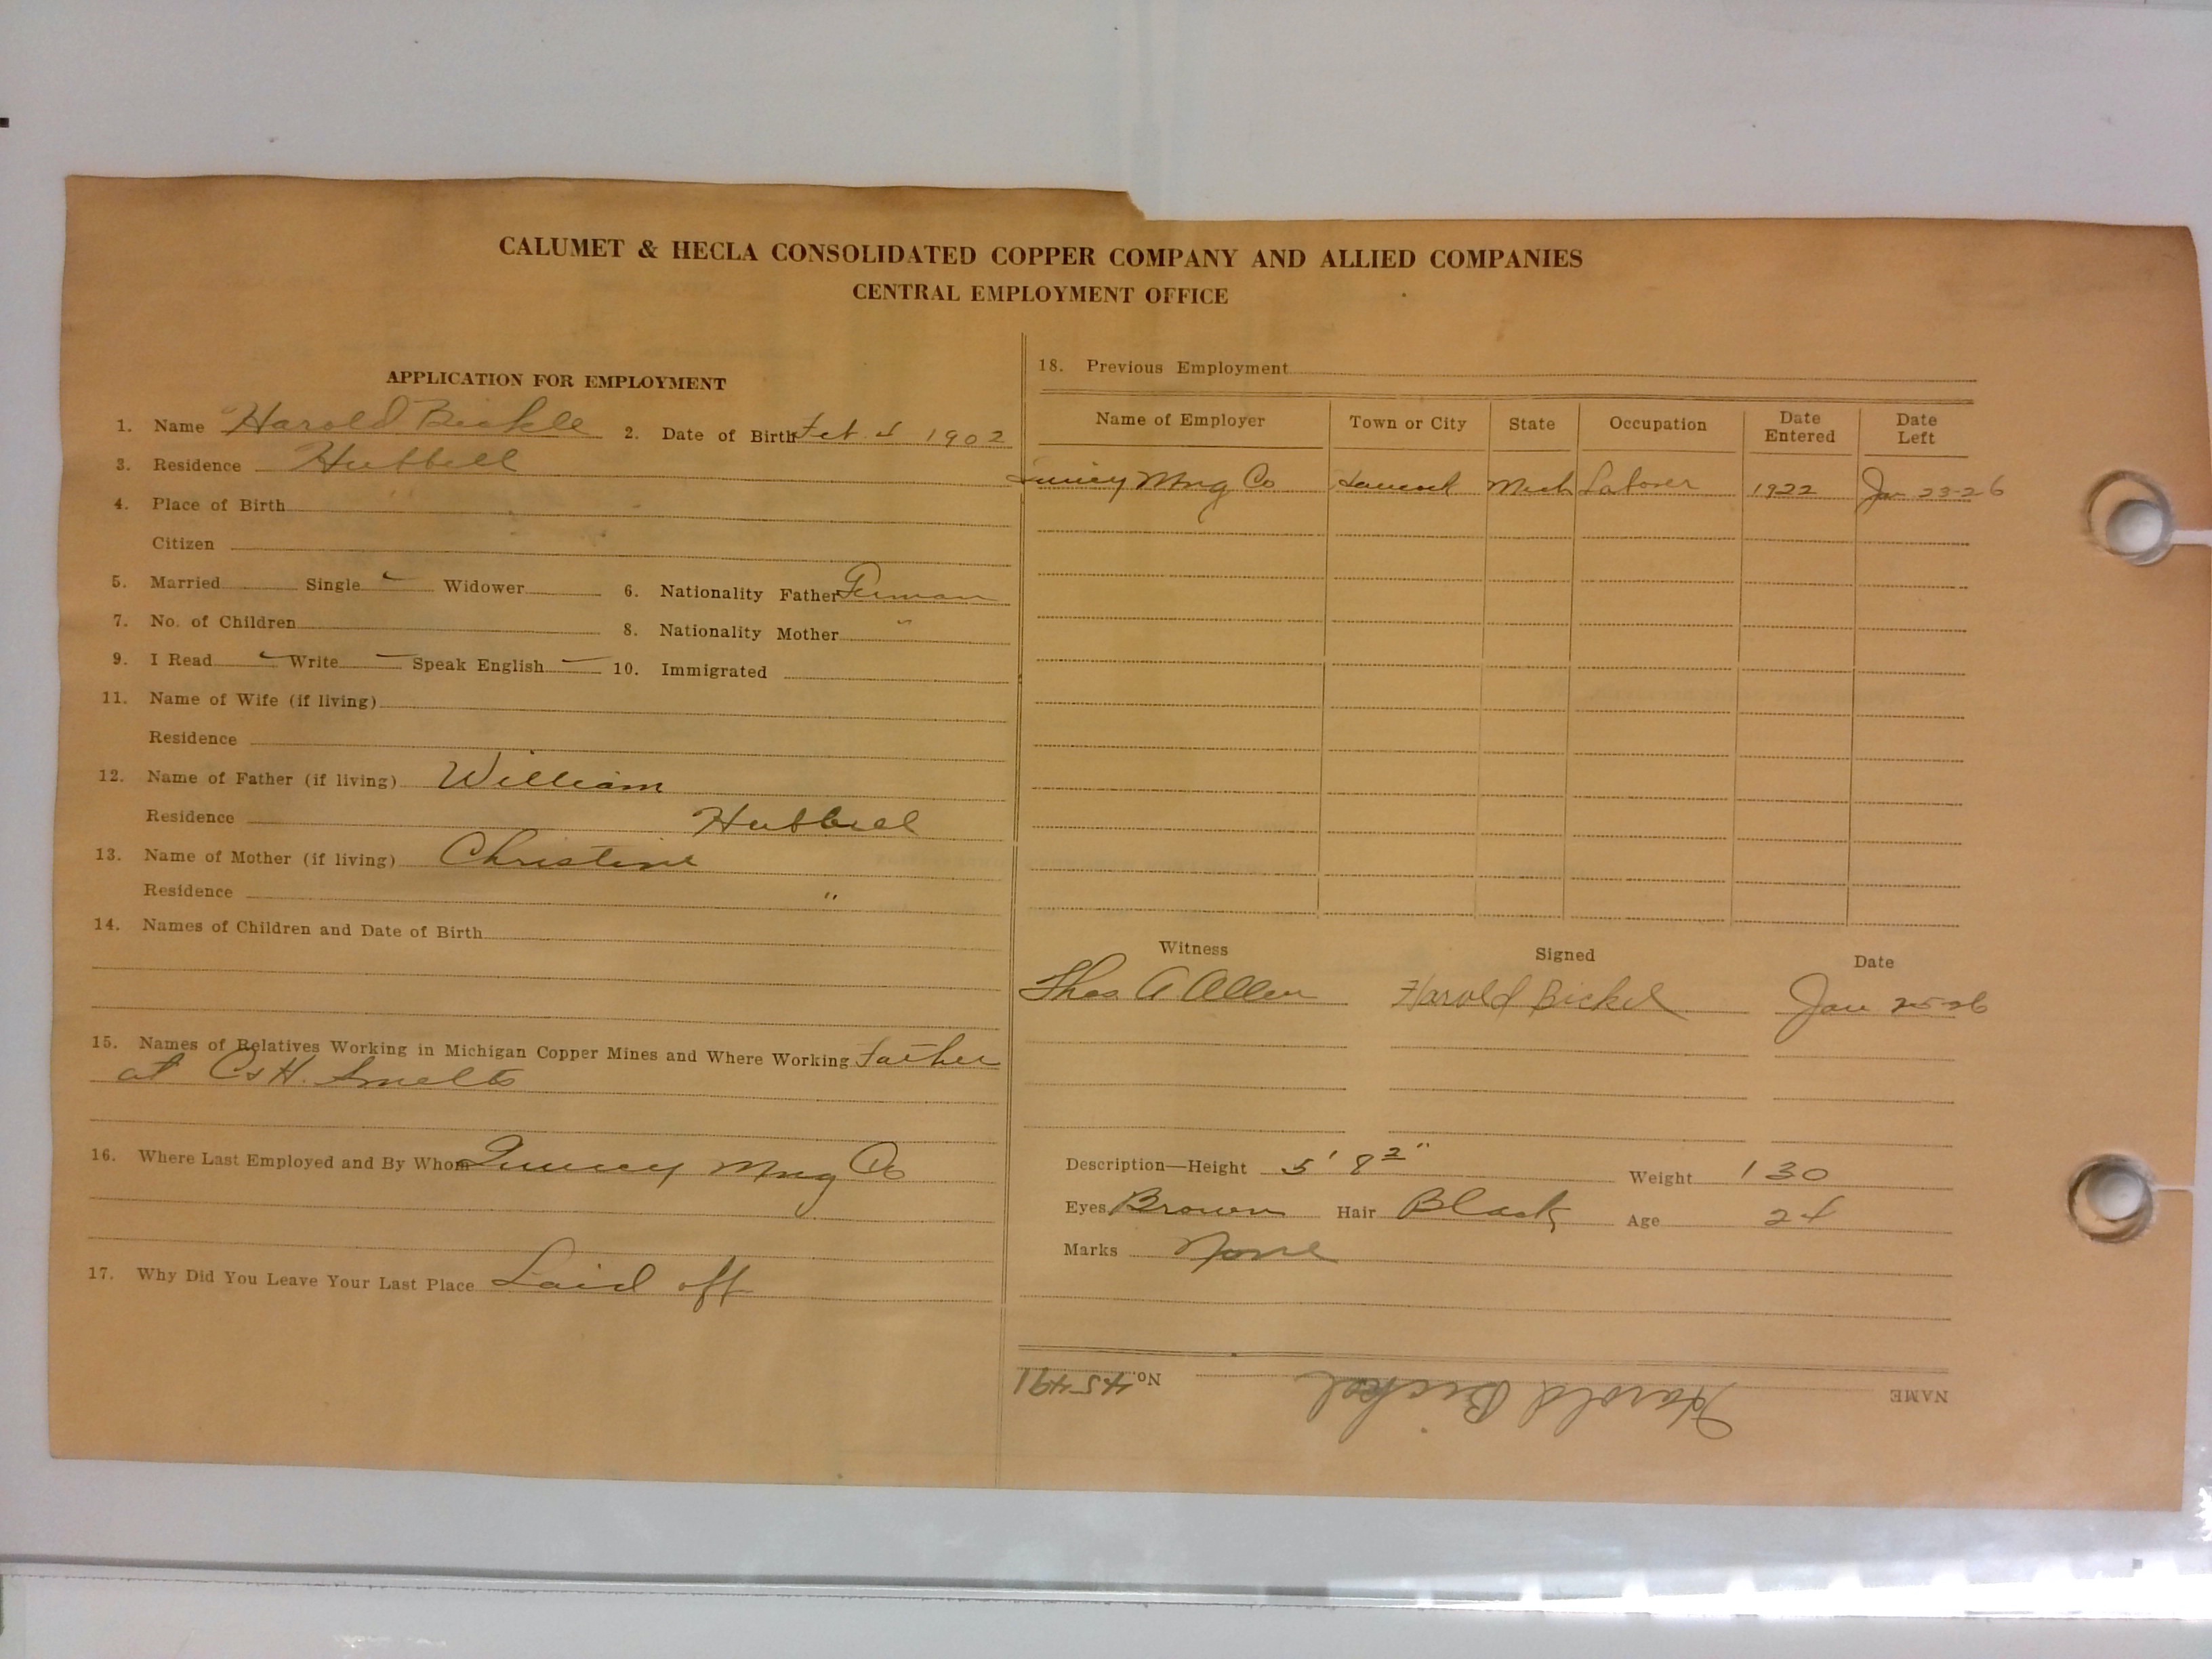 CALUMET & HECLA CONSOLIDATED COPPER COMPANY AND ALLIED COMPANIES
CENTRAL EMPLOYMENT OFFICE
APPLICATION FOR EMPLOYMENT
1. Name Harold Bickle 2. Date of Birth Feb. 4 1902
3. Residence Hubbell
4. Place of Birth
Citizen
5. Married Single ✓ Widower 6. Nationality Father German
7. No. of Children 8. Nationality Mother "
9. I Read ✓ Write ✓ Speak English ✓ 10. Immigrated
11. Name of Wife (if living)
Residence
12. Name of Father (if living) William
Residence Hubbell
13. Name of Mother (if living) Christine
Residence "
14. Names of Children and Date of Birth
15. Names of Relatives Working in Michigan Copper Mines and Where Working Father
at C & H. Smelts
16. Where Last Employed and By Whom Quincy Mng Co
17. Why Did You Leave Your Last Place Laid off
18. Previous Employment
Name of Employer Town or City State Occupation Date Entered Date Left
Quincy Mng Co Hancock Mich Laborer 1922 Jan 23-26
Witness Signed Date
Thos A Allen Harold Bickel Jan 25-26
Description—Height 5' 8 2" Weight 130
Eyes Brown Hair Black Age 24
Marks None
NAME Harold Bickel No. 45491